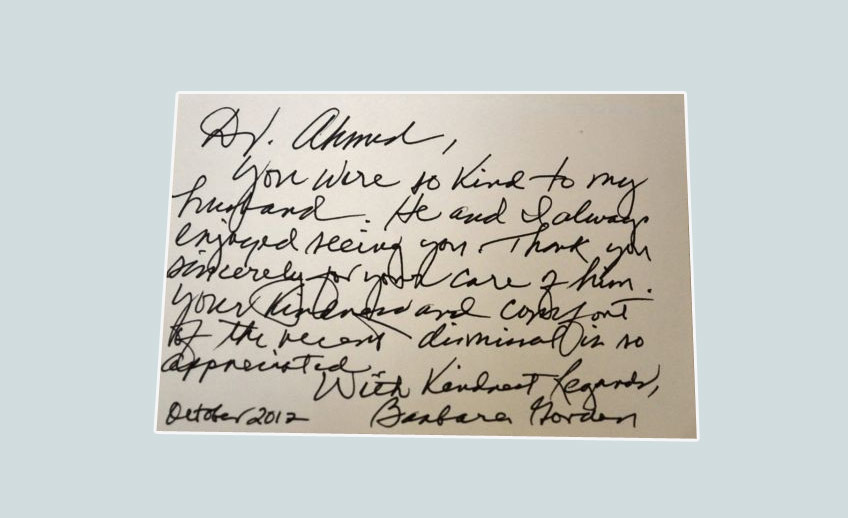 Dr. Ahmed,
You were so kind to my
husband. He and I always
enjoyed seeing you. Thank you
sincerely for your care of him.
Your kindness and comfort
of the recent dismissal is so
appreciated.
With Kindest Regards,
October 2012 Barbara Gorden